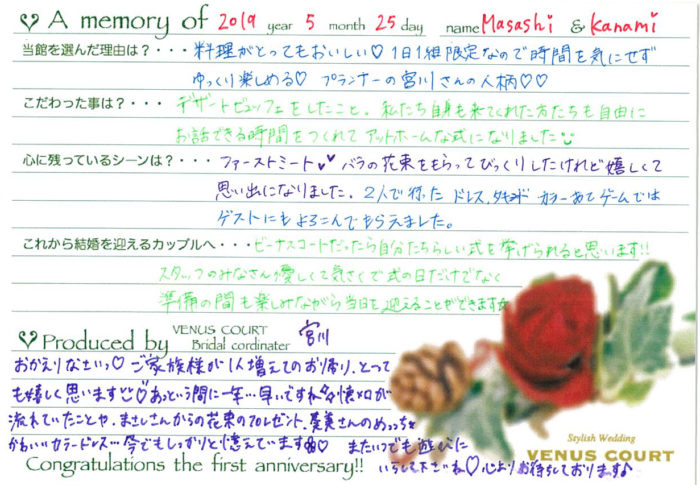 A memory of 2019 year 5 month 25 day name Masashi & Kanami
当館を選んだ理由は？・・・料理がとってもおいしい♡ 1日1組限定なので時間を気にせず
ゆっくり楽しめる♡ プランナーの宮川さんの人柄♡♡
こだわった事は？・・・デザートビュッフェをしたこと。私たち自身も来てくれた方たちも自由に
お話できる時間をつくれてアットホームな式になりました
心に残っているシーンは？・・・ファーストミート バラの花束をもらってびっくりしたけれど嬉しくて
思い出になりました。2人で行った ドレス、タキシード カラーあてゲームでは
ゲストにもよろこんでもらえました。
これから結婚を迎えるカップルへ・・・ビーナスコートだったら自分たちらしい式を挙げられると思います!!
スタッフのみなさん優しくて気さくで式の日だけでなく
準備の間も楽しみながら当日を迎えることができます☆
Produced by VENUS COURT
Bridal cordinater 宮川
おかえりなさいっ♡ ご家族様が1人増えてのお帰り、とって
も嬉しく思います♡あっという間に一年…早いですね 懐メロが
流れていたことや、まさしさんからの花束のプレゼント、奏美さんのめっちゃ
かわいいカラードレス…今でもしっかりと憶えています またいつでも遊びに
いらして下さいね♡心よりお待ちしております♪
Congratulations the first anniversary!!
Stylish Wedding
VENUS COURT